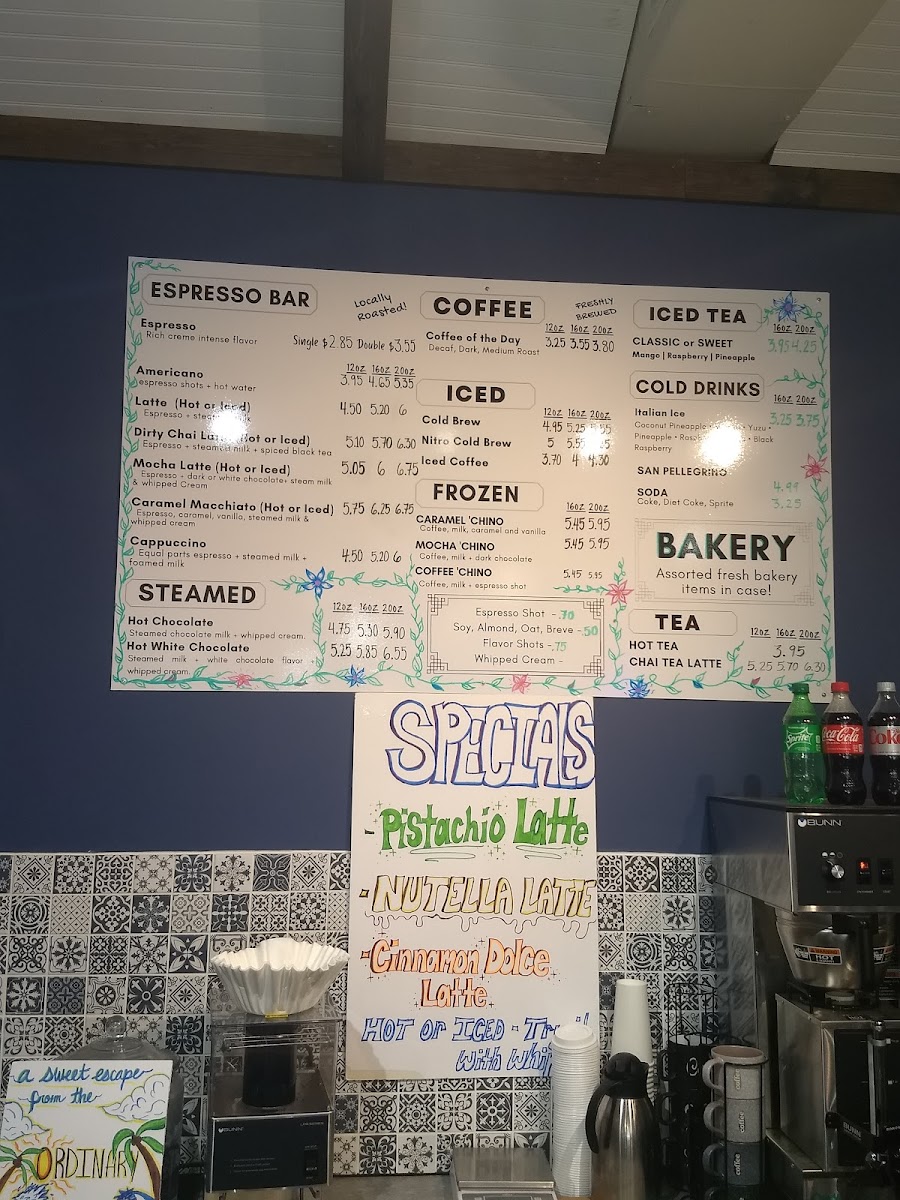 ESPRESSO BAR
Locally
Roasted!
Espresso
Rich creme intense flavor
Single $2.85 Double $3.55
12oz 16oz 20oz
Americano 3.95 4.65 5.35
espresso shots + hot water
Latte (Hot or Iced) 4.50 5.20 6
Espresso +
Dirty Chai (Hot or Iced) 5.10 5.70 6.30
Espresso + steamed milk + spiced black tea
Mocha Latte (Hot or Iced) 5.05 6 6.75
Espresso + dark or white chocolate+ steam milk
& whipped Cream
Caramel Macchiato (Hot or Iced) 5.75 6.25 6.75
Espresso, caramel, vanilla, steamed milk &
whipped cream
Cappuccino 4.50 5.20 6
Equal parts espresso + steamed milk +
foamed milk
STEAMED
12oz 16oz 20oz
Hot Chocolate 4.75 5.30 5.90
Steamed chocolate milk + whipped cream.
Hot White Chocolate 5.25 5.85 6.55
Steamed milk + white chocolate flavor +
whipped cream.
COFFEE
FRESHLY
BREWED
12oz 16oz 20oz
Coffee of the Day 3.25 3.55 3.80
Decaf, Dark, Medium Roast
ICED
12oz 16oz 20oz
Cold Brew 4.95 5.25
Nitro Cold Brew 5 5.55
Iced Coffee 3.70 4 4.30
FROZEN
16oz 20oz
CARAMEL 'CHINO 5.45 5.95
Coffee, milk, caramel and vanilla
MOCHA 'CHINO 5.45 5.95
Coffee, milk + dark chocolate
COFFEE 'CHINO 5.45 5.95
Coffee, milk + espresso shot
Espresso Shot - .70
Soy, Almond, Oat, Breve - .50
Flavor Shots - .75
Whipped Cream -
ICED TEA
16oz 20oz
CLASSIC or SWEET 3.95 4.25
Mango | Raspberry | Pineapple
COLD DRINKS
16oz 20oz
Italian Ice 3.25 3.75
Coconut Pineapple • Yuzu •
Pineapple • • Black
Raspberry
SAN PELLEGRINO
4.99
SODA 3.25
Coke, Diet Coke, Sprite
BAKERY
Assorted fresh bakery
items in case!
TEA
12oz 16oz 20oz
HOT TEA 3.95
CHAI TEA LATTE 5.25 5.70 6.30
SPECIALS
- Pistachio Latte
- NUTELLA LATTE
- Cinnamon Dolce
Latte
HOT or ICED -
with
Sprite
Coca-Cola
Coke
BUNN
HOT
a sweet escape
from the
ORDINARY
BUNN
coffee
coffee
coffee